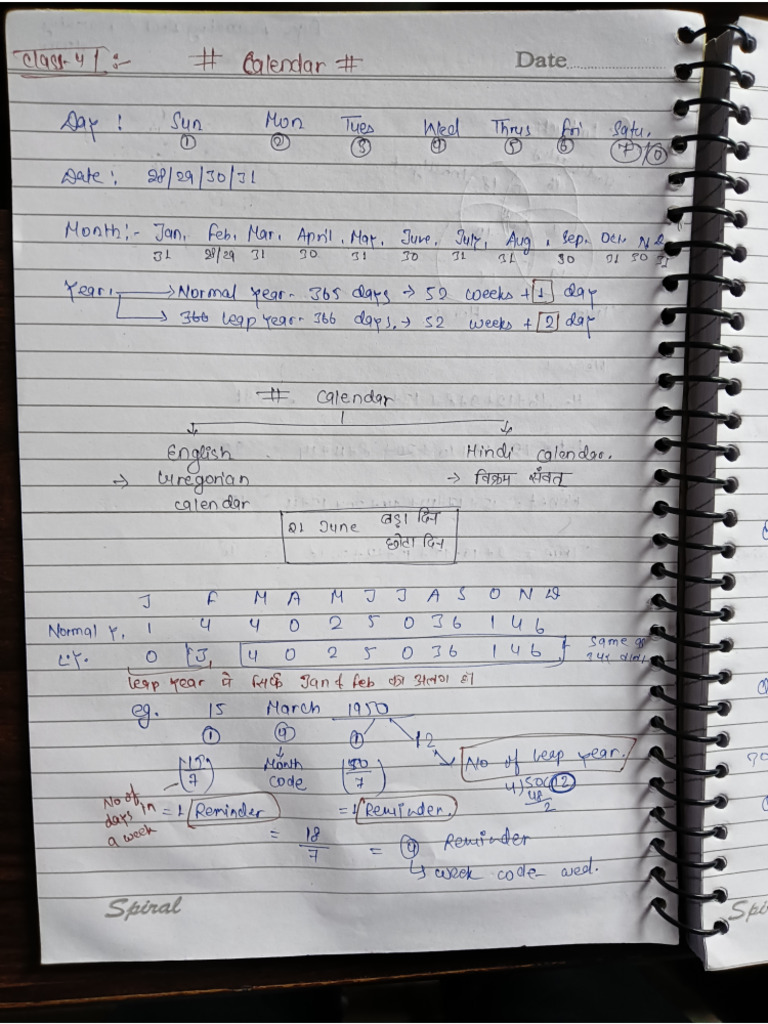 Class-4 :- # Calendar # Date
Day : Sun Mon Tues Wed Thrus Fri Satu.
1 2 3 4 5 6 7/0
Date : 28/29/30/31
Month :- Jan, Feb, Mar, April, May, June, July, Aug, Sep. Oct. N D
31 28/29 31 30 31 30 31 31 30 31 30 31
Year, → Normal year - 365 days → 52 weeks + 1 day
→ 366 leap year - 366 days, → 52 weeks + 2 day
# Calendar
English Hindi calendar.
→ Gregorian → विक्रम संवत्
calendar
21 June बड़ा दिन
छोटा दिन
J F M A M J J A S O N D
Normal Y, 1 4 4 0 2 5 0 3 6 1 4 6
L.Y. 0 3, 4 0 2 5 0 3 6 1 4 6 Same
leap year में सिर्फ Jan & Feb का अलग है।
eg. 15 March 1950
1 4 1 12
15/7 Month code 50/7 No of leap year.
4)50(12
48
2
No of days in a week
= 1 Reminder = 1 Reminder.
= 18/7 = 4 Reminder
↳ week code - wed.
Spiral
Spi